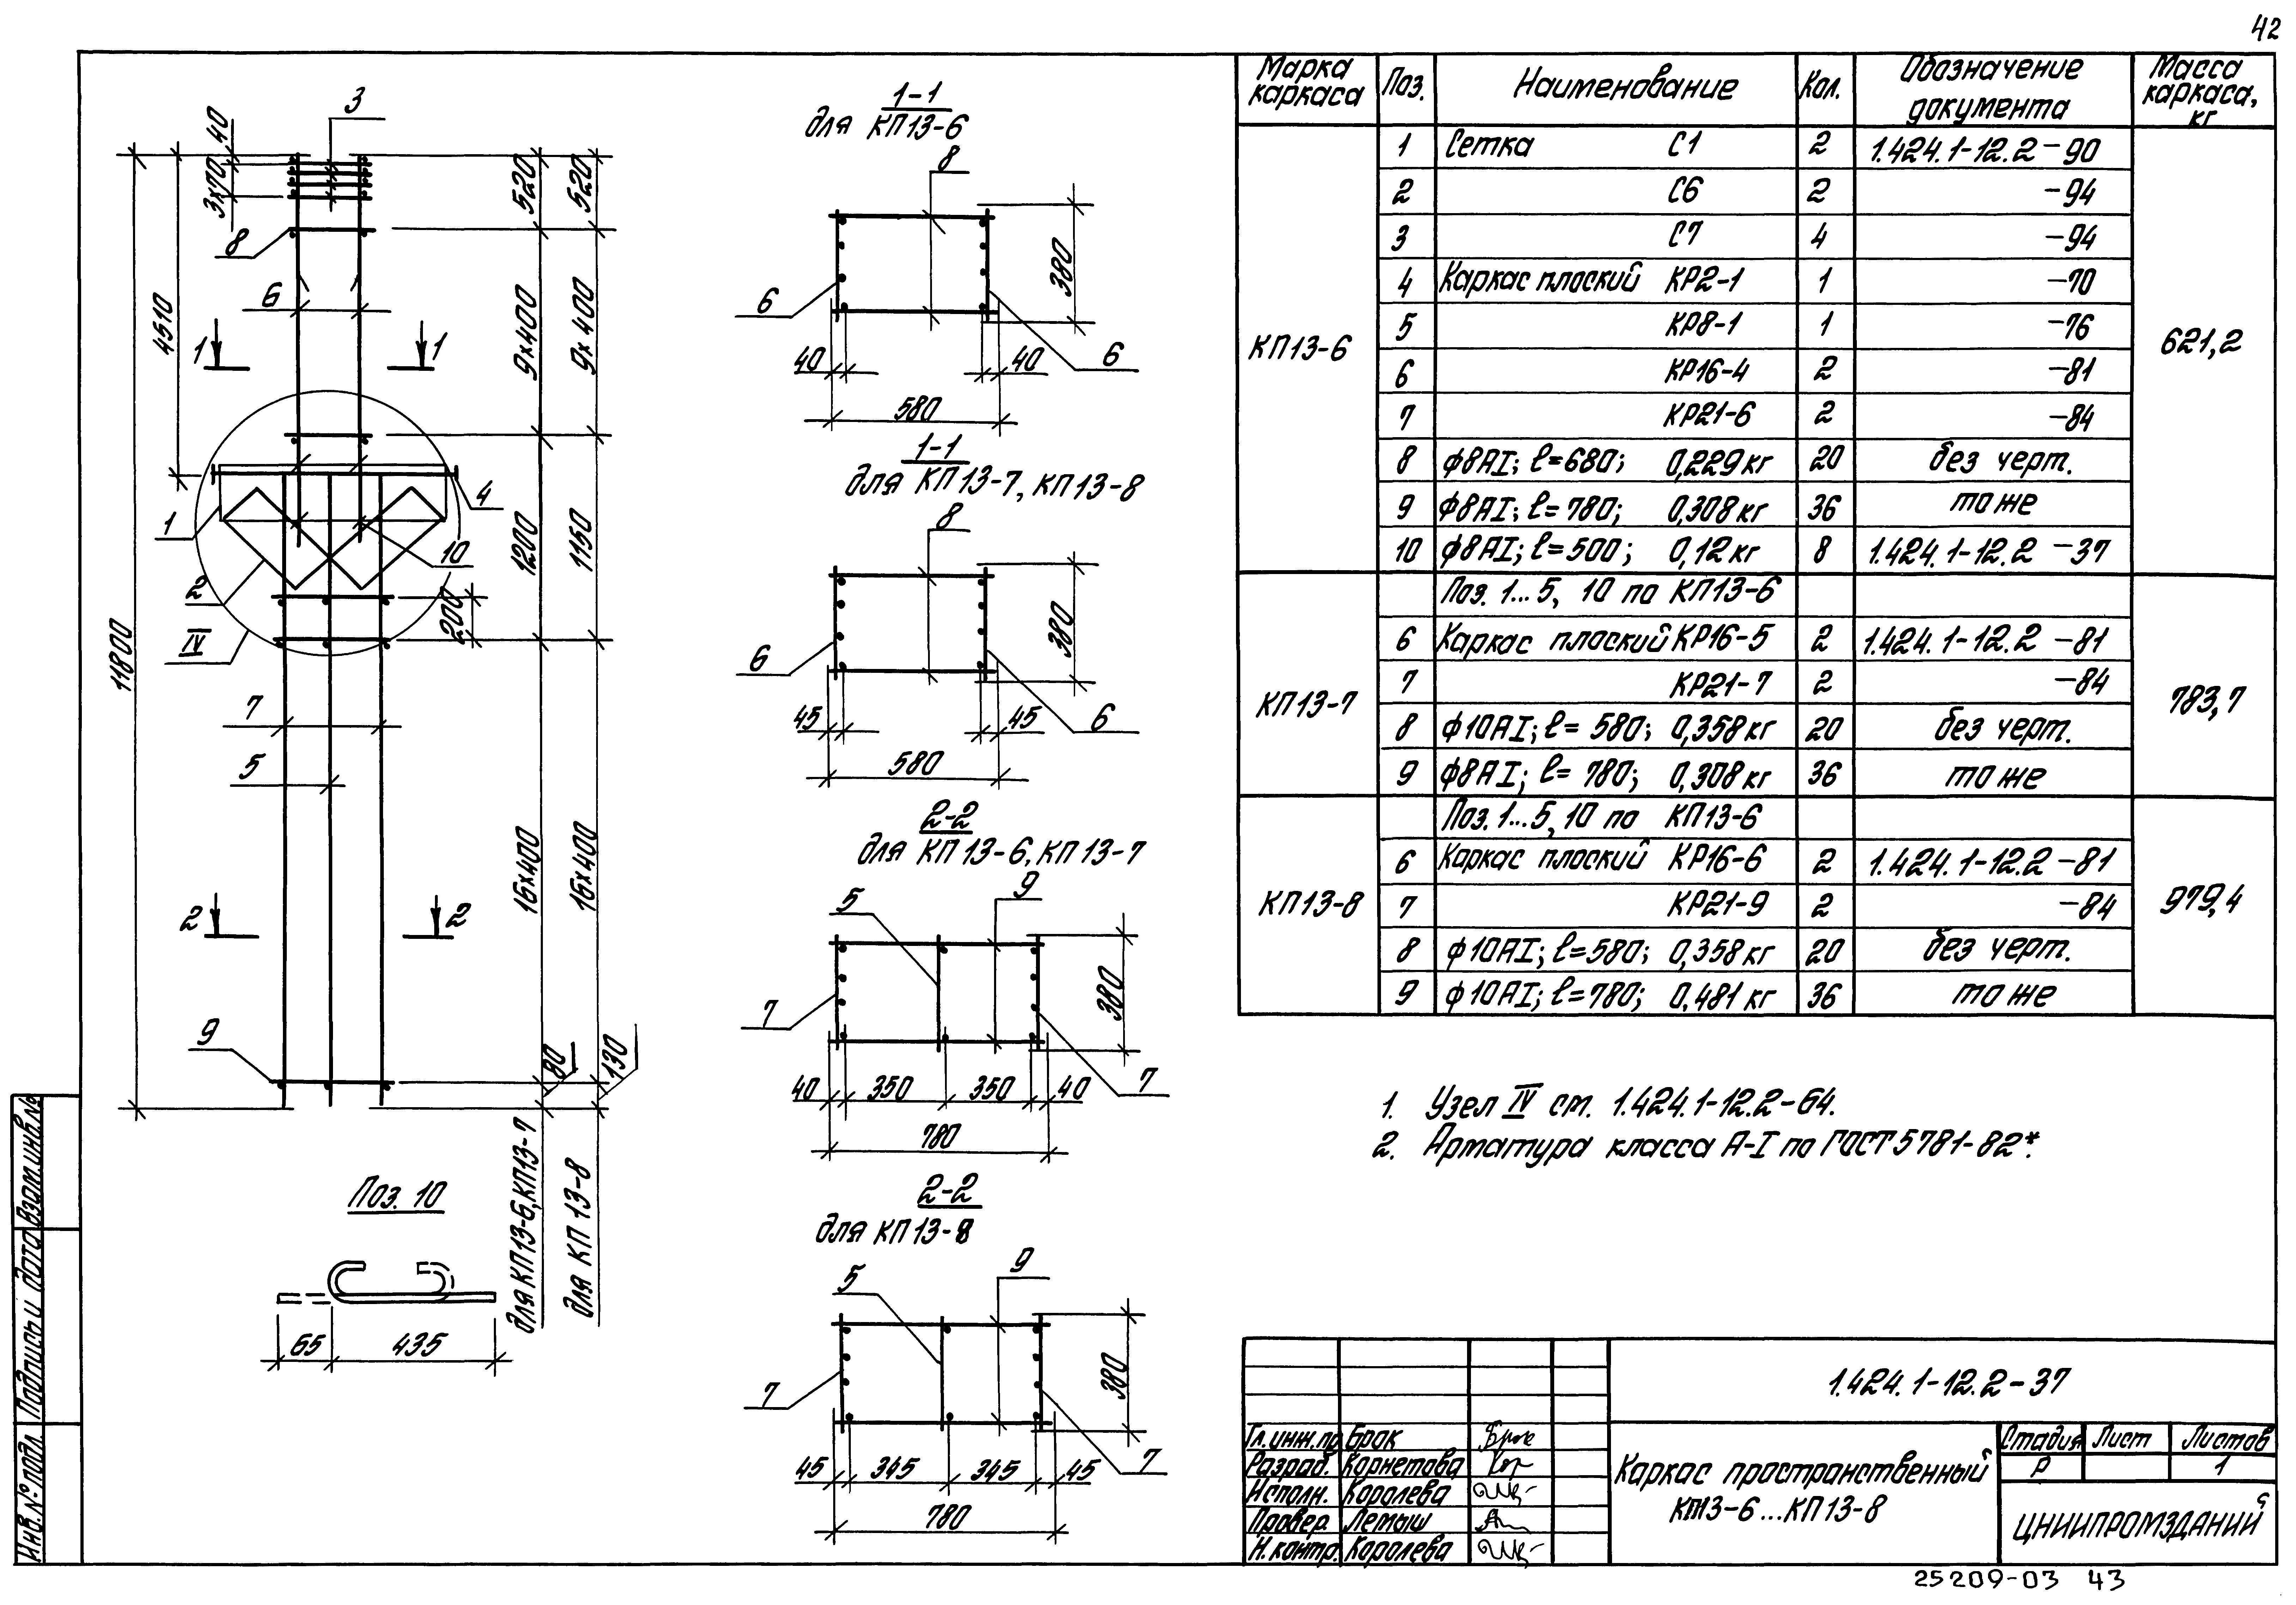 42
3
40
3х70
8
6
4510
1
1
520
520
9х400
9х400
4
1
10
2
1200
1150
200
IV
11800
7
5
16х400
16х400
2
2
9
80
130
для КП13-6, КП13-7
для КП 13-8
Поз. 10
65
435
1-1
для КП13-6
8
380
6
6
40
40
580
1-1
для КП13-7, КП13-8
8
380
6
6
45
45
580
2-2
для КП13-6, КП13-7
5
9
380
7
7
40
350
350
40
780
2-2
для КП13-8
5
9
380
7
7
45
345
345
45
780
Марка каркаса Поз. Наименование Кол. Обозначение документа Масса каркаса, кг
КП13-6 621,2
1 Сетка С1 2 1.424.1-12.2-90
2 С6 2 -94
3 С7 4 -94
4 Каркас плоский КР2-1 1 -70
5 КР8-1 1 -76
6 КР16-4 2 -81
7 КР21-6 2 -84
8 ф8АI; ℓ=680; 0,229кг 20 без черт.
9 ф8АI; ℓ=780; 0,308кг 36 то же
10 ф8АI; ℓ=500; 0,12кг 8 1.424.1-12.2-37
КП13-7 783,7
Поз. 1...5, 10 по КП13-6
6 Каркас плоский КР16-5 2 1.424.1-12.2-81
7 КР21-7 2 -84
8 ф10АI; ℓ=580; 0,358кг 20 без черт.
9 ф8АI; ℓ=780; 0,308кг 36 то же
КП13-8 979,4
Поз. 1...5, 10 по КП13-6
6 Каркас плоский КР16-6 2 1.424.1-12.2-81
7 КР21-9 2 -84
8 ф10АI; ℓ=580; 0,358кг 20 без черт.
9 ф10АI; ℓ=780; 0,481кг 36 то же
1. Узел IV см. 1.424.1-12.2-64.
2. Арматура класса А-I по ГОСТ 5781-82*.
1.424.1-12.2-37
Гл.инж.пр Брок
Разраб. Корнетова
Исполн. Королева
Провер. Лемыш
Н.контр. Королева
Каркас пространственный
КП13-6...КП13-8
Стадия Лист Листов
Р 1
ЦНИИПРОМЗДАНИЙ
25209-03 43
Взам.инв.№
Подпись и дата
Инв.№ подл.